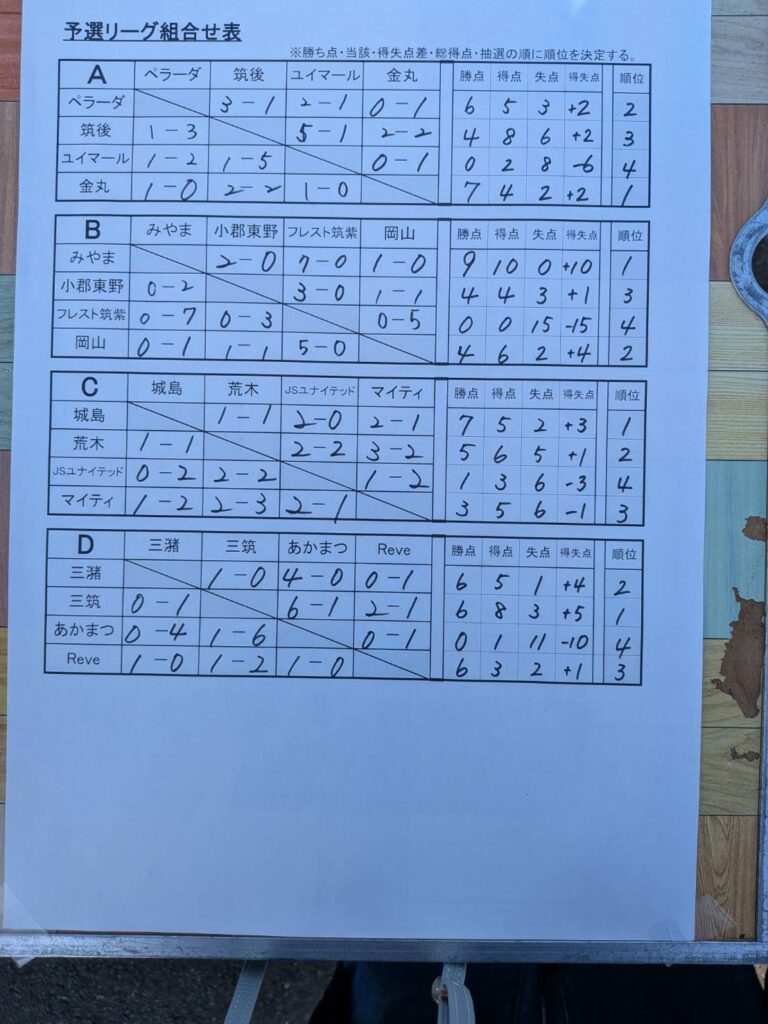 予選リーグ組合せ表
※勝ち点・当該・得失点差・総得点・抽選の順に順位を決定する。
A ペラーダ 筑後 ユイマール 金丸 勝点 得点 失点 得失点 順位
ペラーダ 3-1 2-1 0-1 6 5 3 +2 2
筑後 1-3 5-1 2-2 4 8 6 +2 3
ユイマール 1-2 1-5 0-1 0 2 8 -6 4
金丸 1-0 2-2 1-0 7 4 2 +2 1
B みやま 小郡東野 フレスト筑紫 岡山 勝点 得点 失点 得失点 順位
みやま 2-0 7-0 1-0 9 10 0 +10 1
小郡東野 0-2 3-0 1-1 4 4 3 +1 3
フレスト筑紫 0-7 0-3 0-5 0 0 15 -15 4
岡山 0-1 1-1 5-0 4 6 2 +4 2
C 城島 荒木 JSユナイテッド マイティ 勝点 得点 失点 得失点 順位
城島 1-1 2-0 2-1 7 5 2 +3 1
荒木 1-1 2-2 3-2 5 6 5 +1 2
JSユナイテッド 0-2 2-2 1-2 1 3 6 -3 4
マイティ 1-2 2-3 2-1 3 5 6 -1 3
D 三潴 三筑 あかまつ Reve 勝点 得点 失点 得失点 順位
三潴 1-0 4-0 0-1 6 5 1 +4 2
三筑 0-1 6-1 2-1 6 8 3 +5 1
あかまつ 0-4 1-6 0-1 0 1 11 -10 4
Reve 1-0 1-2 1-0 6 3 2 +1 3